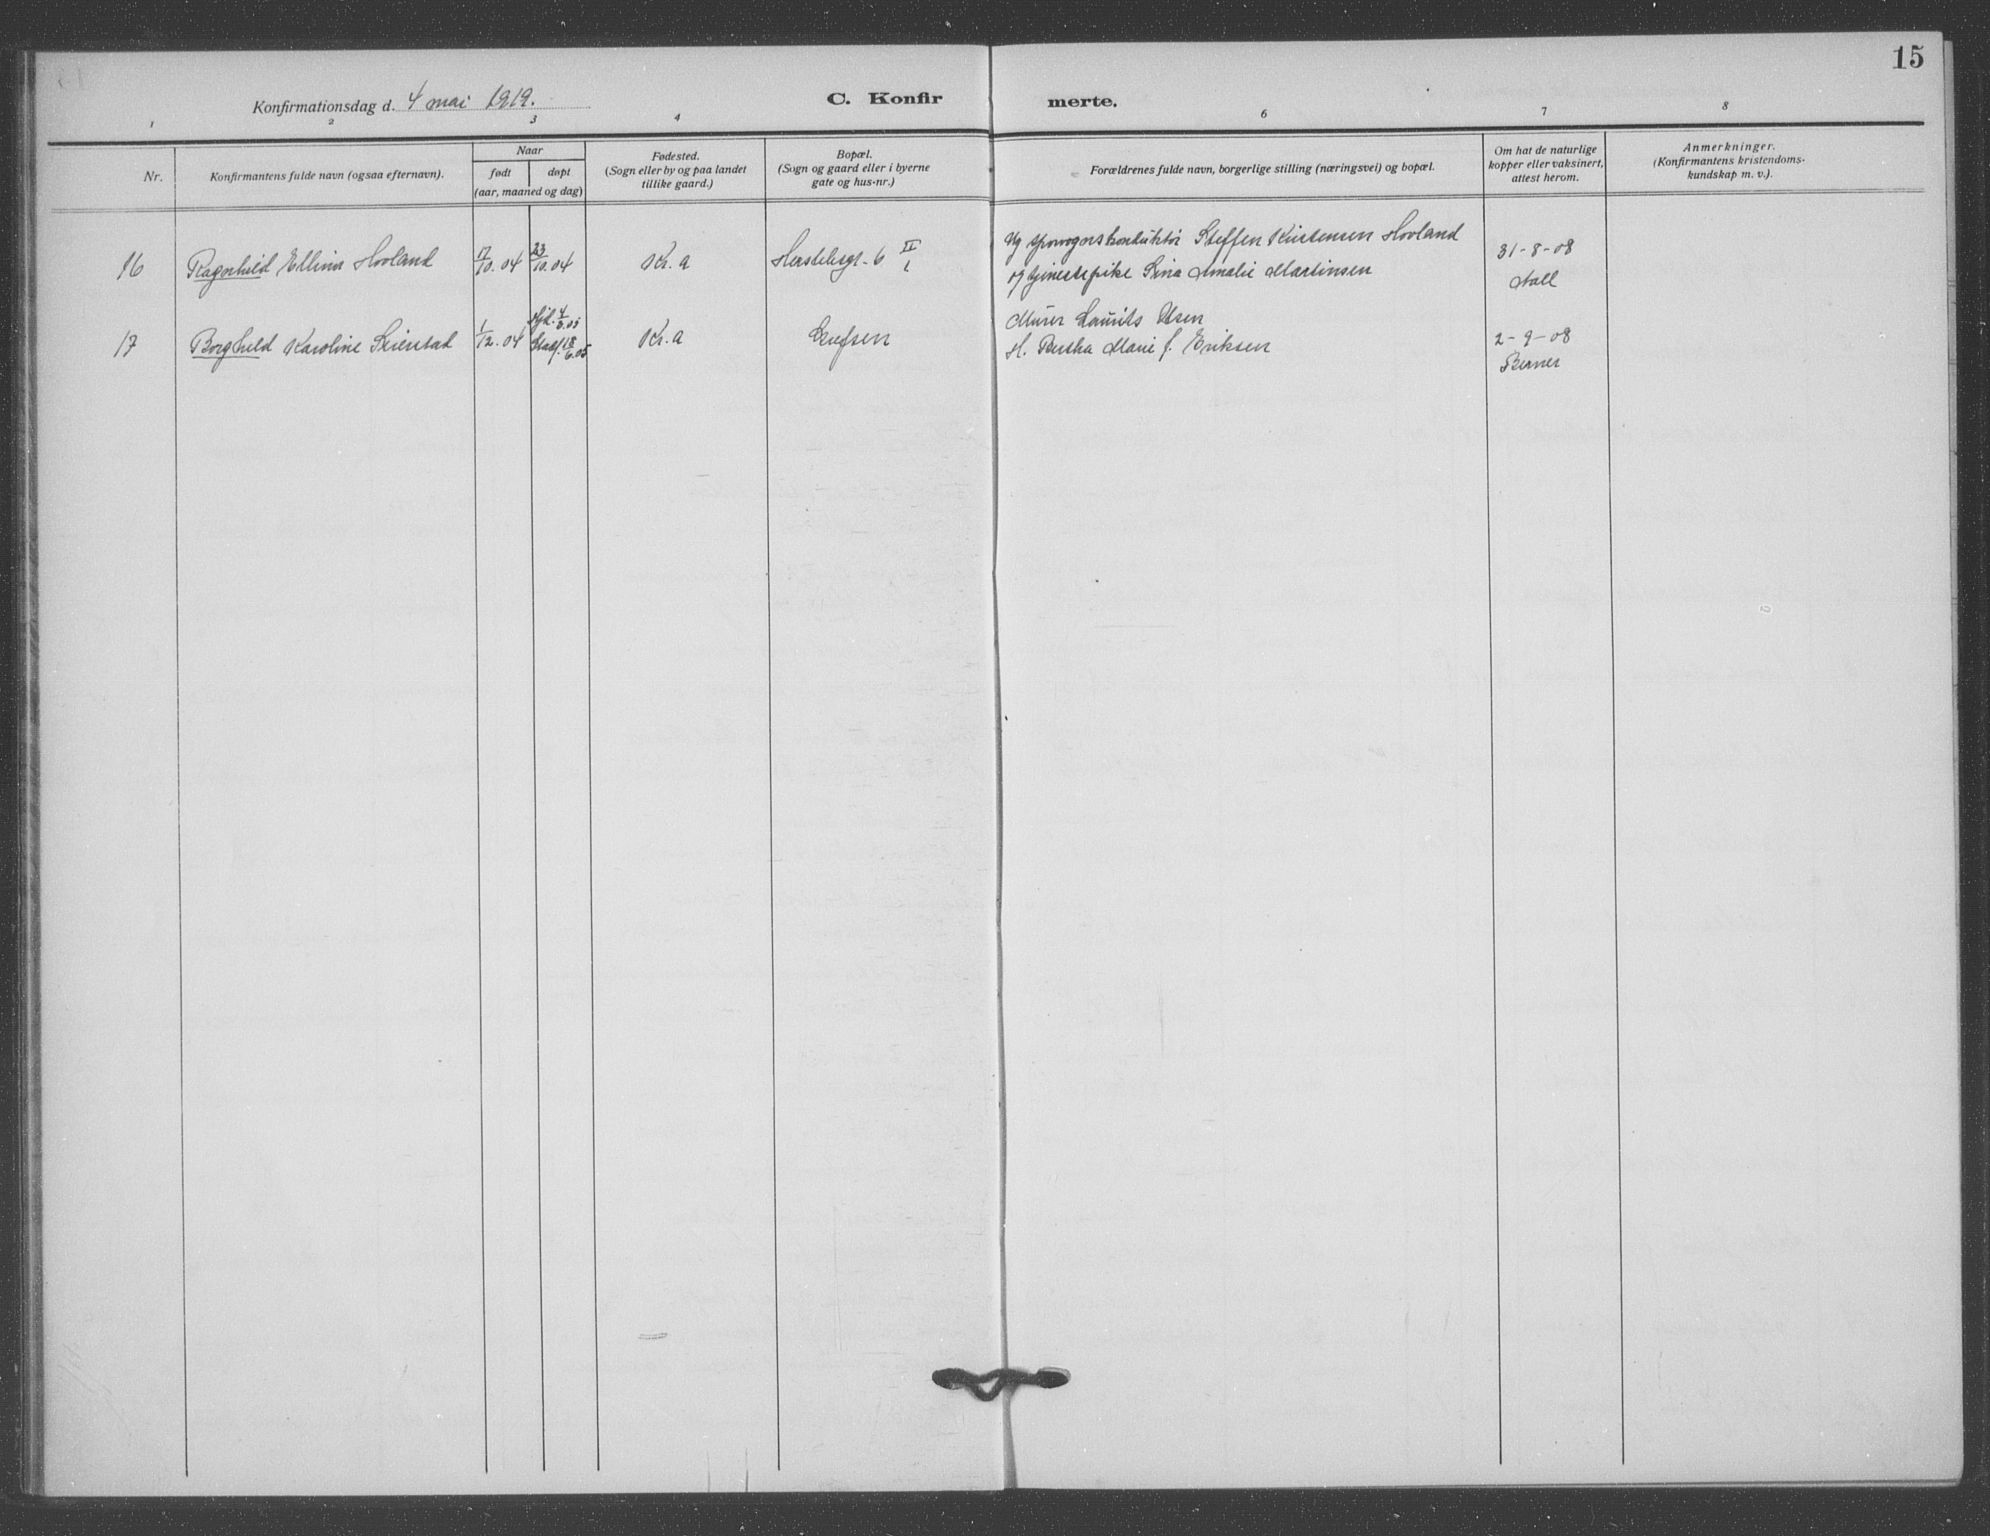 15
Konfirmationsdag d. 4 mai 1919.
C. Konfirmerte.
1 2 3 4 6 7 8
Nr.
Konfirmantens fulde navn (ogsaa efternavn).
Naar
født
døpt
(aar, maaned og dag)
Fødested.
(Sogn eller by og paa landet
tillike gaard.)
Bopæl.
(Sogn og gaard eller i byerne
gate og hus-nr.)
Forældrenes fulde navn, borgerlige stilling (næringsvei) og bopæl.
Om hat de naturlige
kopper eller vaksinert,
attest herom.
Anmerkninger.
(Konfirmantens kristendoms-
kundskap m. v.).
16 Ragnhild Ellina Hovland 17/10.04 23/10.04 Kr.a 6 II/1 Ug sporvognskonduktør Steffen Kristensen Hovland 31-8-08
og tjenestepike Lina Amalie Martinsen Aall
Hjd. 4/6.05 Murer Laurits Olsen
17 Borghild Karoline 1/12.04 Stadf. 18/6.05 Kr.a Grefsen H. Marie f. Eriksen 2-9-08
Berner